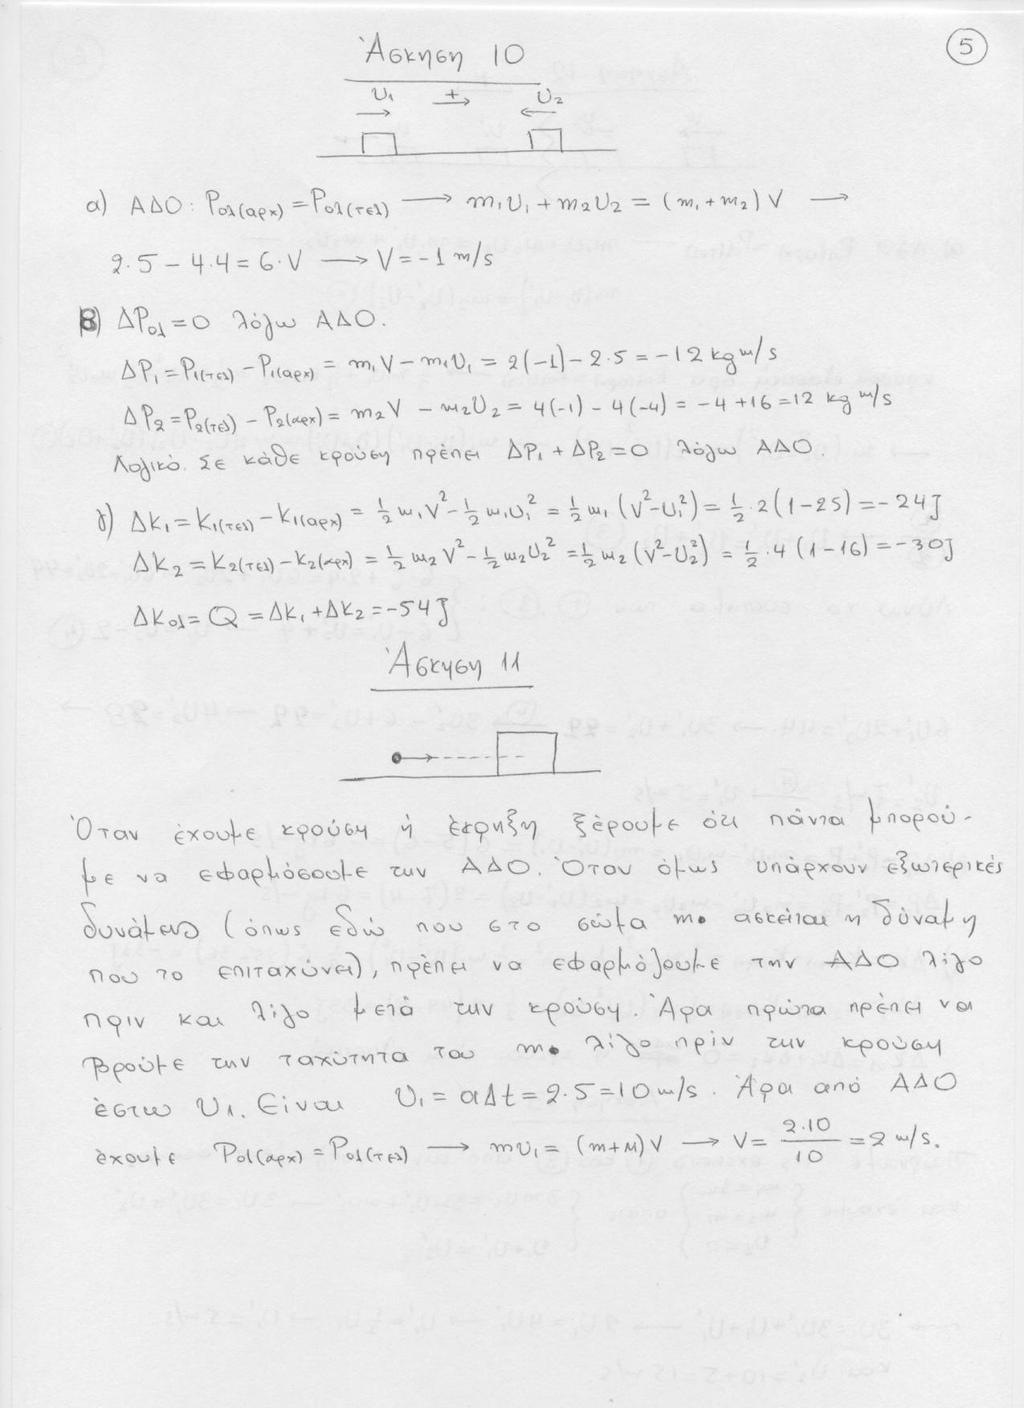 5
Άσκηση 10
υ₁ + υ₂
α) ΑΔΟ: Pολ(αρχ) = Pολ(τελ) → m₁υ₁ + m₂υ₂ = (m₁ + m₂) V →
2·5 – 4·4 = 6·V → V = -1 m/s
β) ΔPολ = 0 λόγω ΑΔΟ.
ΔP₁ = P₁(τελ) – P₁(αρχ) = m₁V – m₁υ₁ = 2(-1) – 2·5 = -12 kg m/s
ΔP₂ = P₂(τελ) – P₂(αρχ) = m₂V – m₂υ₂ = 4(-1) – 4(-4) = -4 +16 = 12 kg m/s
Λογικό. Σε κάθε κρούση πρέπει ΔP₁ + ΔP₂ = 0 λόγω ΑΔΟ.
γ) ΔK₁ = K₁(τελ) – K₁(αρχ) = ½ m₁V² – ½ m₁υ₁² = ½ m₁ (V² – υ₁²) = ½ · 2 (1 – 25) = -24J
ΔK₂ = K₂(τελ) – K₂(αρχ) = ½ m₂V² – ½ m₂υ₂² = ½ m₂ (V² – υ₂²) = ½ · 4 (1 – 16) = -30J
ΔKολ = Q = ΔK₁ + ΔK₂ = -54J
Άσκηση 11
Όταν έχουμε κρούση ή έκρηξη ξέρουμε ότι πάντα μπορού-
με να εφαρμόσουμε την ΑΔΟ. Όταν όμως υπάρχουν εξωτερικές
δυνάμεις (όπως εδώ που στο σώμα m ασκείται η δύναμη
που το επιταχύνει), πρέπει να εφαρμόζουμε την ΑΔΟ λίγο
πριν και λίγο μετά την κρούση. Άρα πρώτα πρέπει να
βρούμε την ταχύτητα του m λίγο πρίν την κρούση
έστω υ₁. Είναι υ₁ = αΔt = 2·5 = 10 m/s. Άρα από ΑΔΟ
έχουμε Pολ(αρχ) = Pολ(τελ) → mυ₁ = (m+M) V → V = 2·10/10 = 2 m/s.